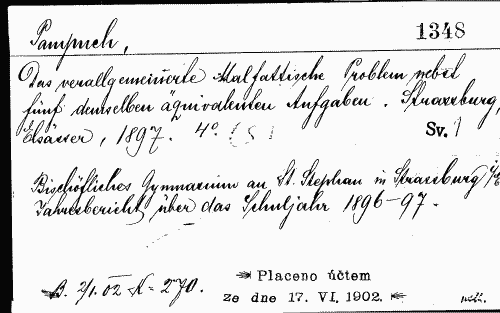 1348
Pampuch,
Das verallgemeinerte Malfattische Problem nebst
fünf demselben äquivalenten Aufgaben. Strassburg,
Elsässer, 1897. 4° (S) Sv. 1
Bischöfliches Gymnasium an St. Stephan in Strassburg i/E
Jahresbericht über das Schuljahr 1896-97.
B. 2/1.02 K = 2.70.
Placeno účtem
ze dne 17. VI. 1902.